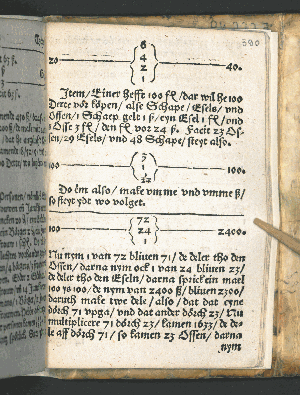 390
6
4
20 2 40.
1
Item/ Einer hefft 100 fl/ dar wil he 100
Derte vor köpen/ alse Schape/ Esels/ vnd
Ossen/ 1 Schaep gelt 1 ß/ eyn Esel 1 fl/ vnd
1 Osse 3 fl/ den fl vor 24 ß. Facit 23 Os-
sen/ 29 Esels/ vnd 48 Schape/ steyt also.
3
100 1 100.
1/24
Do em also/ make vmme vnd vmme ß/
so steyt ydt wo volget.
72
100 24 2400.
1
Nu nym 1 van 72 bliuen 71/ de deler tho den
Ossen/ darna nym ock 1 van 24 bliuen 23/
de deler tho den Eseln/ darna sprick ein mael
100 ys 100/ de nym van 2400 ß/ bliuen 2300/
daruth make twe dele/ also/ dat dat eyne
dörch 71 vpga/ vnd dat ander dörch 23/ Nu
multiplicere 71 dörch 23/ kamen 1633/ de de-
le aff dörch 71/ so kamen 23 Ossen/ darna
nym